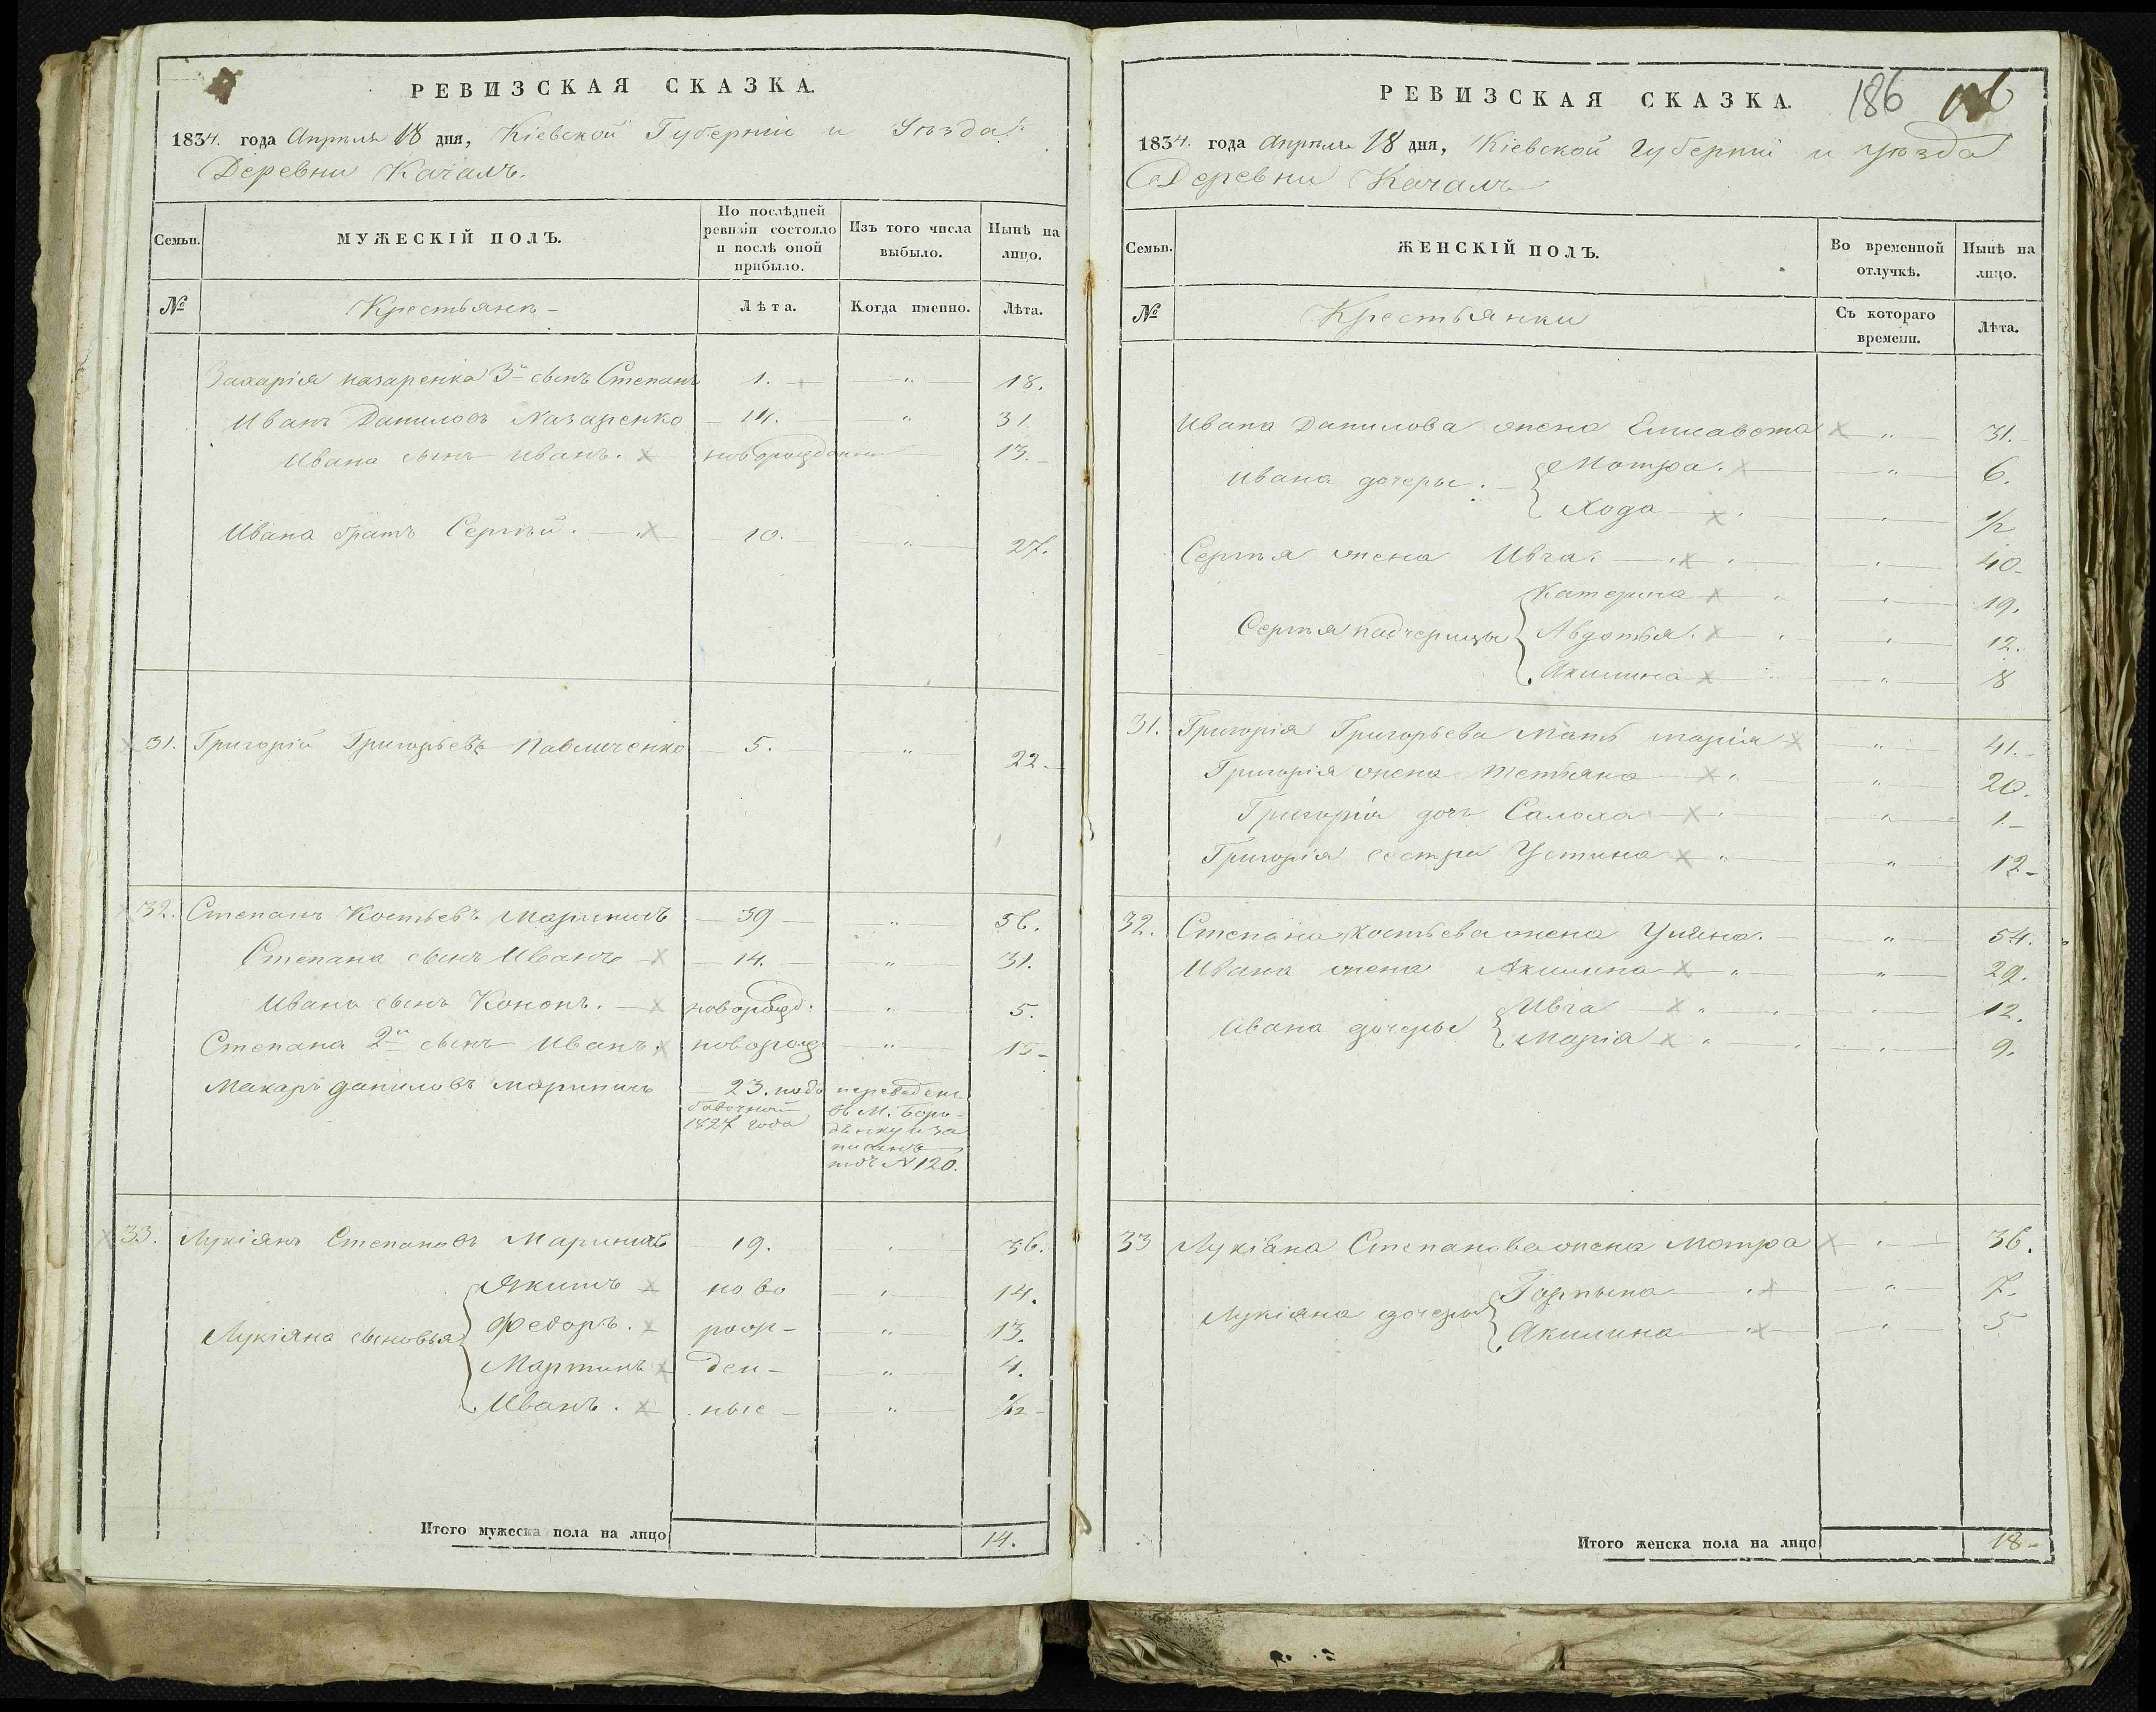 РЕВИЗСКАЯ СКАЗКА.
1834. года Апрѣля 18 дня, Кіевской Губерніи и Уѣзда
Деревни Качалъ.
Семьи.
МУЖЕСКІЙ ПОЛЪ.
По послѣдней ревизіи состояло и послѣ оной прибыло.
Изъ того числа выбыло.
Нынѣ на лицо.
№
Крестьянъ
Лѣта.
Когда именно.
Лѣта.
Захарія назаренка 3й сынъ Степанъ 1. " 18.
Иванъ Даниловъ Назаренко 14. " 31.
Ивана сынъ Иванъ. x новорожденный 13.
Ивана братъ Сергѣй. x 10. " 27.
x 31. Григорій Григорьевъ Павличенко 5. " 22.
32. Степанъ Костьевъ Марининъ 39 " 56.
Степана сынъ Иванъ x 14. " 31.
Ивана сынъ Кононъ. x новорожд. " 5.
Степана 2й сынъ Иванъ. x новорож " 15
Макаръ даниловъ 23. подо переведенъ
бавочной въ М. Боро-
1827 года дянку и за
писанъ
подъ №120.
x 33. Лукіянъ Степановъ 19. " 36.
Лукіяна сыновья
Якимъ x ново " 14.
Федоръ. x рож- " 13.
Мартинъ x ден- " 4.
Иванъ. x ные " 1/12
Итого мужеска пола на лицо 14.
РЕВИЗСКАЯ СКАЗКА. 186
1834. года Апрѣля 18 дня, Кіевской Губерніи и Уѣзда
Деревни Качалъ
Семьи.
ЖЕНСКІЙ ПОЛЪ.
Во временной отлучкѣ.
Нынѣ на лицо.
№
Крестьянки
Съ котораго времени.
Лѣта.
Ивана Данилова жена Елисавета x " 31.
Ивана дочеры.
Мотра. x " 6.
Хода x " 1/2
Сергѣя жена Ивга. x " 40
Сергѣя надчерицы
Катерина x " 19.
Авдотья. x " 12.
Акилина x " 8
31. Григорія Григорьева мать марія x " 41.
Григорія жена Тетяна x " 20.
Григорія дочь Салоха x " 1
Григорія сестра Устина x " 12
32. Степана костьева жена Уліяна. " 54.
Ивана жена Акилина x " 29.
Ивана дочеры
Ивга x " 12.
Марія x " 9.
33 Лукіяна Степанова жена Мотра x " 36.
Лукіяна дочеры
Горпына x " 7.
Акилина x " 5
Итого женска пола на лицо 18